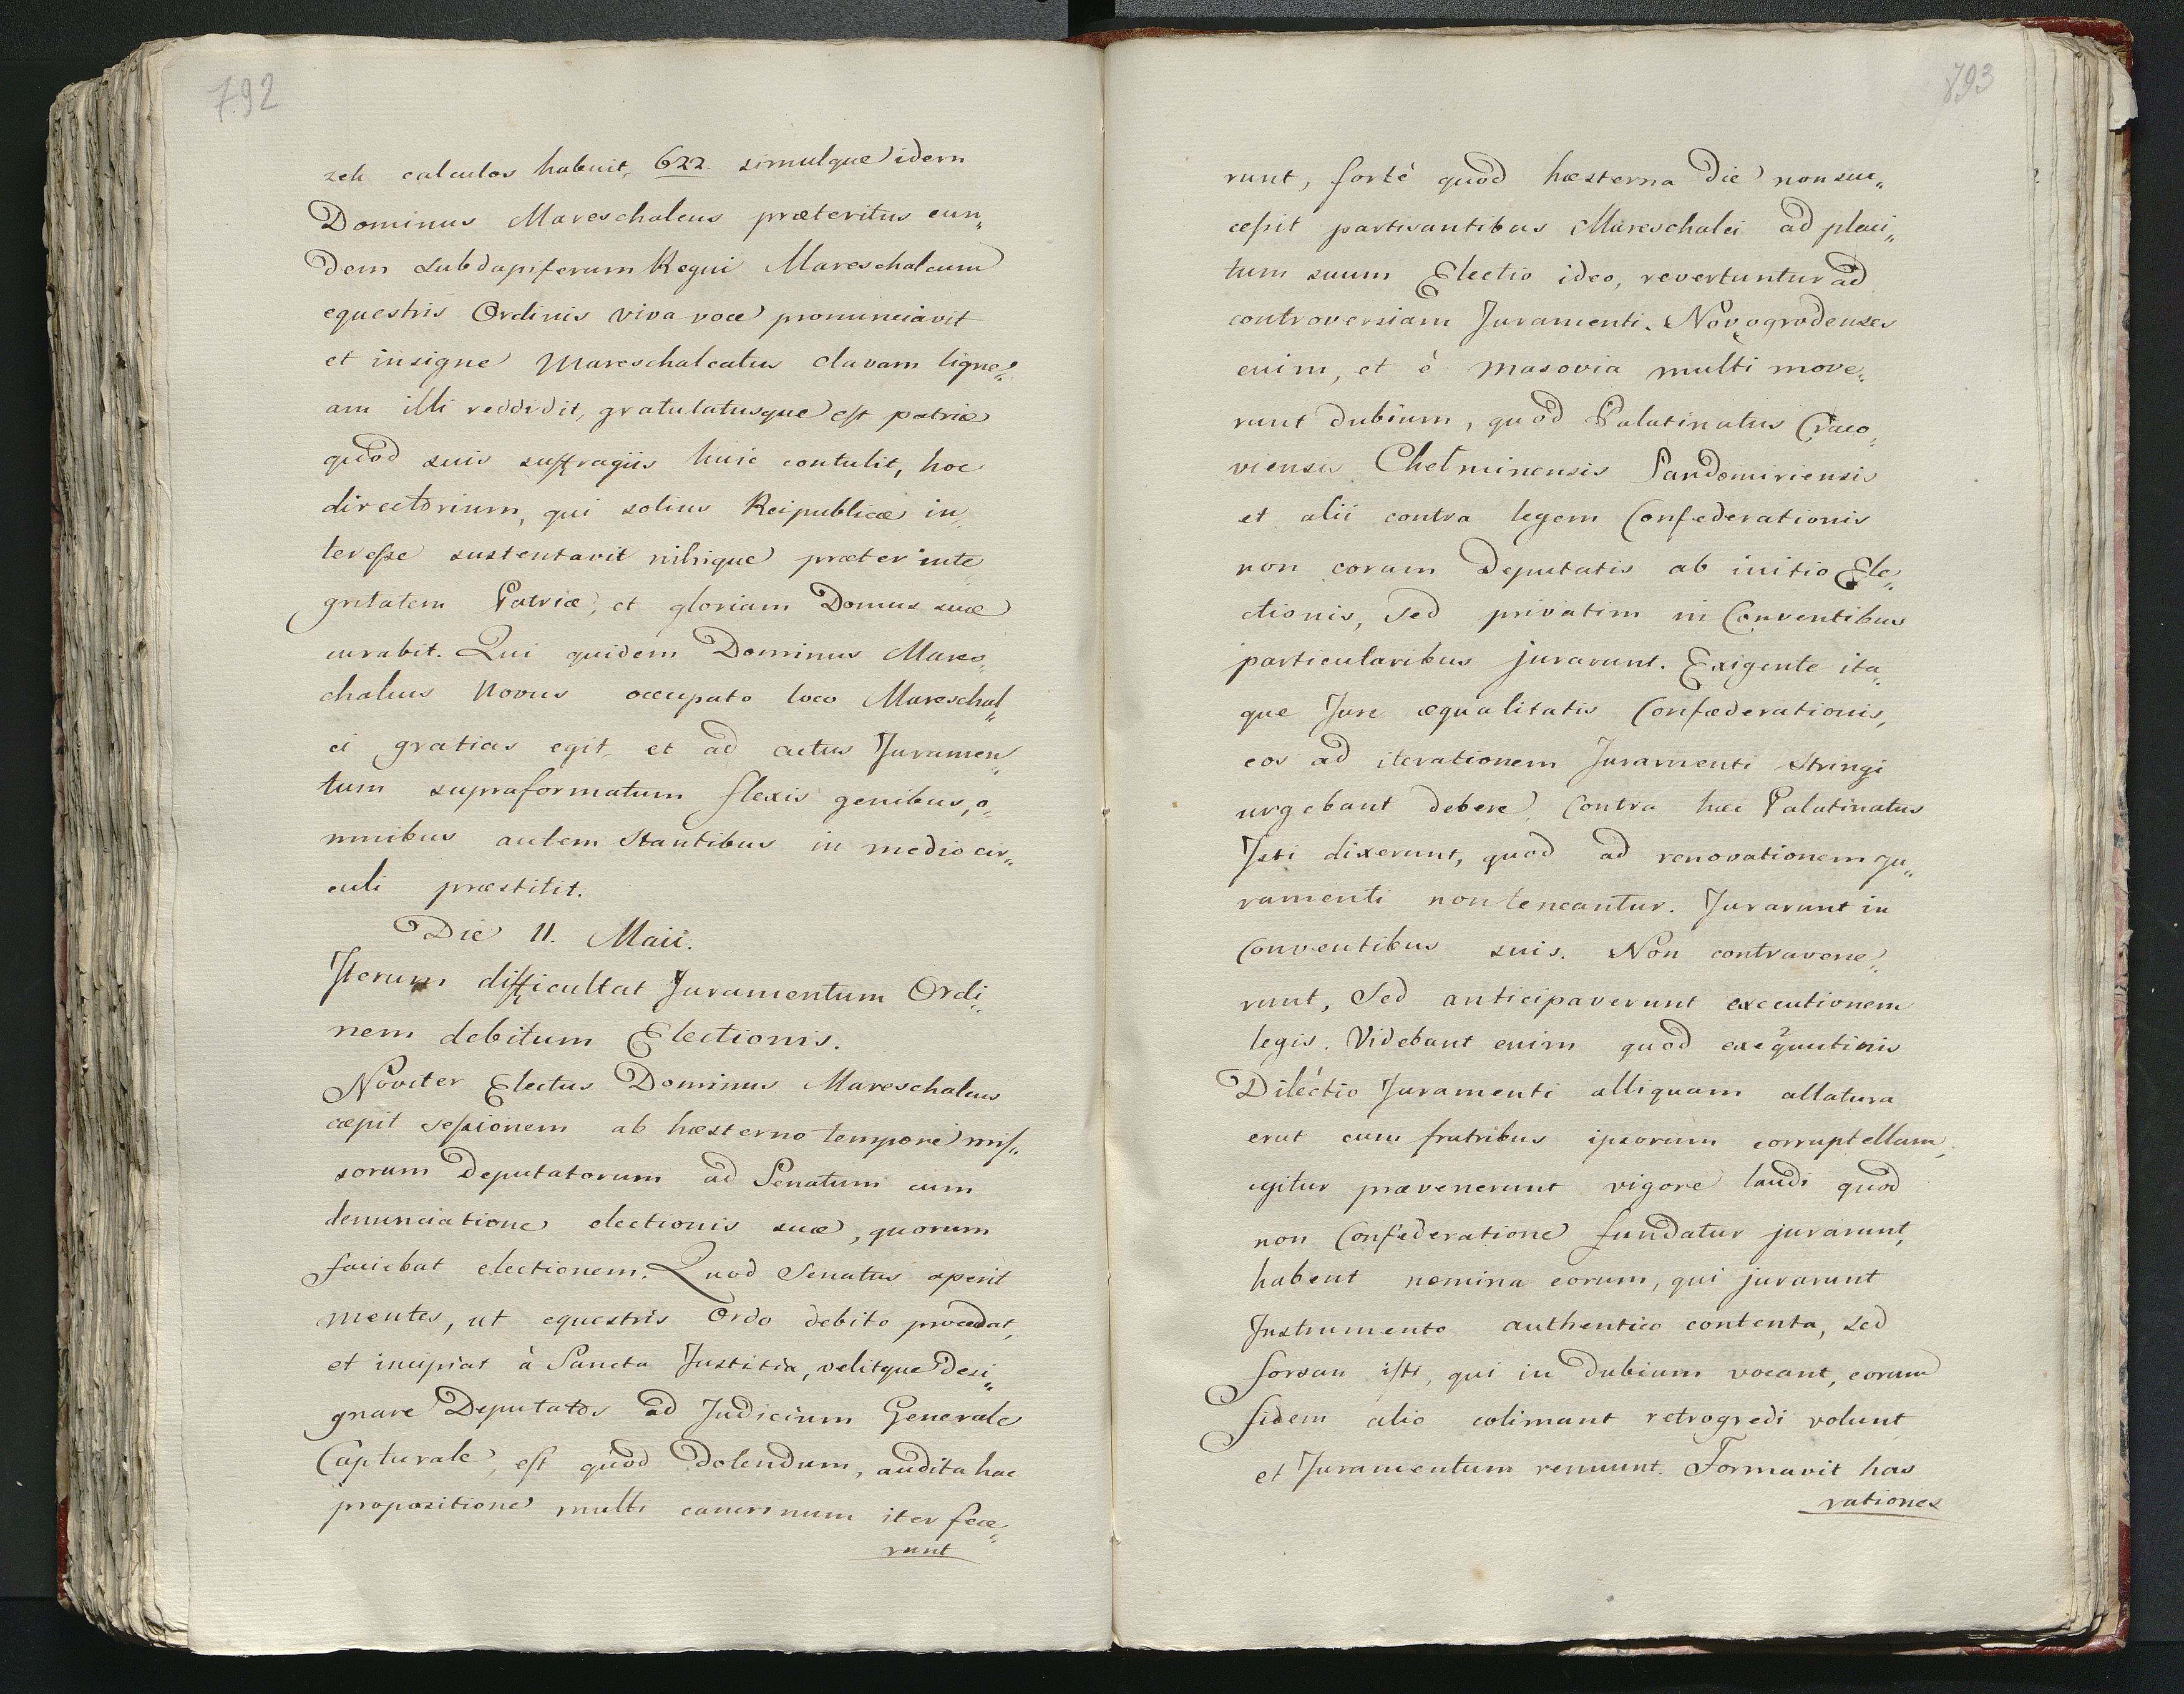 792
zeli calculos habuit, 622. simulque idem
Dominus Mareschalcus præteritus eun„
dem subdapiferum Regni Mareschalcum
equestris Ordinis viva voce pronunciavit
et insigne Mareschalcatus clavam ligne„
am illi reddidit, gratulatusque est patriæ
quod suis suffragiis huic contulit, hoc
directorium, qui solius Reipublicæ in„
teresse sustentavit nihique præter inte
gritatem Patriæ, et gloriam Domus suæ
curabit. Qui quidem Dominus Mares„
chalcus Novus occupato loco Mareschal„
ci gratias egit, et ad actus Juramen„
tum supraformatum flexis genibus, o„
mnibus autem stantibus in medio cir„
culi præstitit.
Die 11. Maii.
Iterum difficultat Juramentum Ordi„
nem debitum Electionis.
Noviter Electus Dominus Mareschalcus
cæpit sessionem ab hæsterno tempore mis„
sorum Deputatorum ad Senatum cum
denunciatione electionis suæ, quorum
faciebat electionem. Quod Senatus aperit
mentes, ut equestris Ordo debito procedat,
et incipiat à Sancta Justitia, velitque desi„
gnare Deputatos ad Judicium Generale
Capturale, est quod dolendum, audita hac
propositione multi cancrinum iter fece„
runt
793
runt, fortè quod hæsterna die non suc„
cessit partisantibus Mareschalci ad placi„
tum suum Electio ideo, revertuntur ad
controversiam Juramenti. Novogrodenses
enim, et è Masovia multi move„
runt dubium, quod Palatinatus Craco„
viensis Chelminensis Sandomiriensis
et alii contra legem Confederationis
non coram Deputatis ab initio Ele„
ctionis, sed privatim in Conventibus
particularibus jurarunt. Exigente ita„
que Jure æqualitatis Confæderationis,
eos ad iterationem Juramenti stringi
urgebant debere. Contra hæc Palatinatus
Isti dixerunt, quod ad renovationem Ju„
ramenti non teneantur. Jurarunt in
Conventibus suis. Non contravene„
runt, sed anticipaverunt executionem
legis. Videbant enim quod
Dilectio Juramenti alliquam allatura
erat cum fratribus ipsorum corruptellam,
igitur prævenerunt vigore laudi quod
non Confederatione fundatur jurarunt,
habent nomina eorum, qui jurarunt
Instrumento authentico contenta, sed
forsan isti, qui in dubium vocant, eorum
fidem alio colimant retrogredi volunt
et Juramentum renuunt. Formavit has
rationes